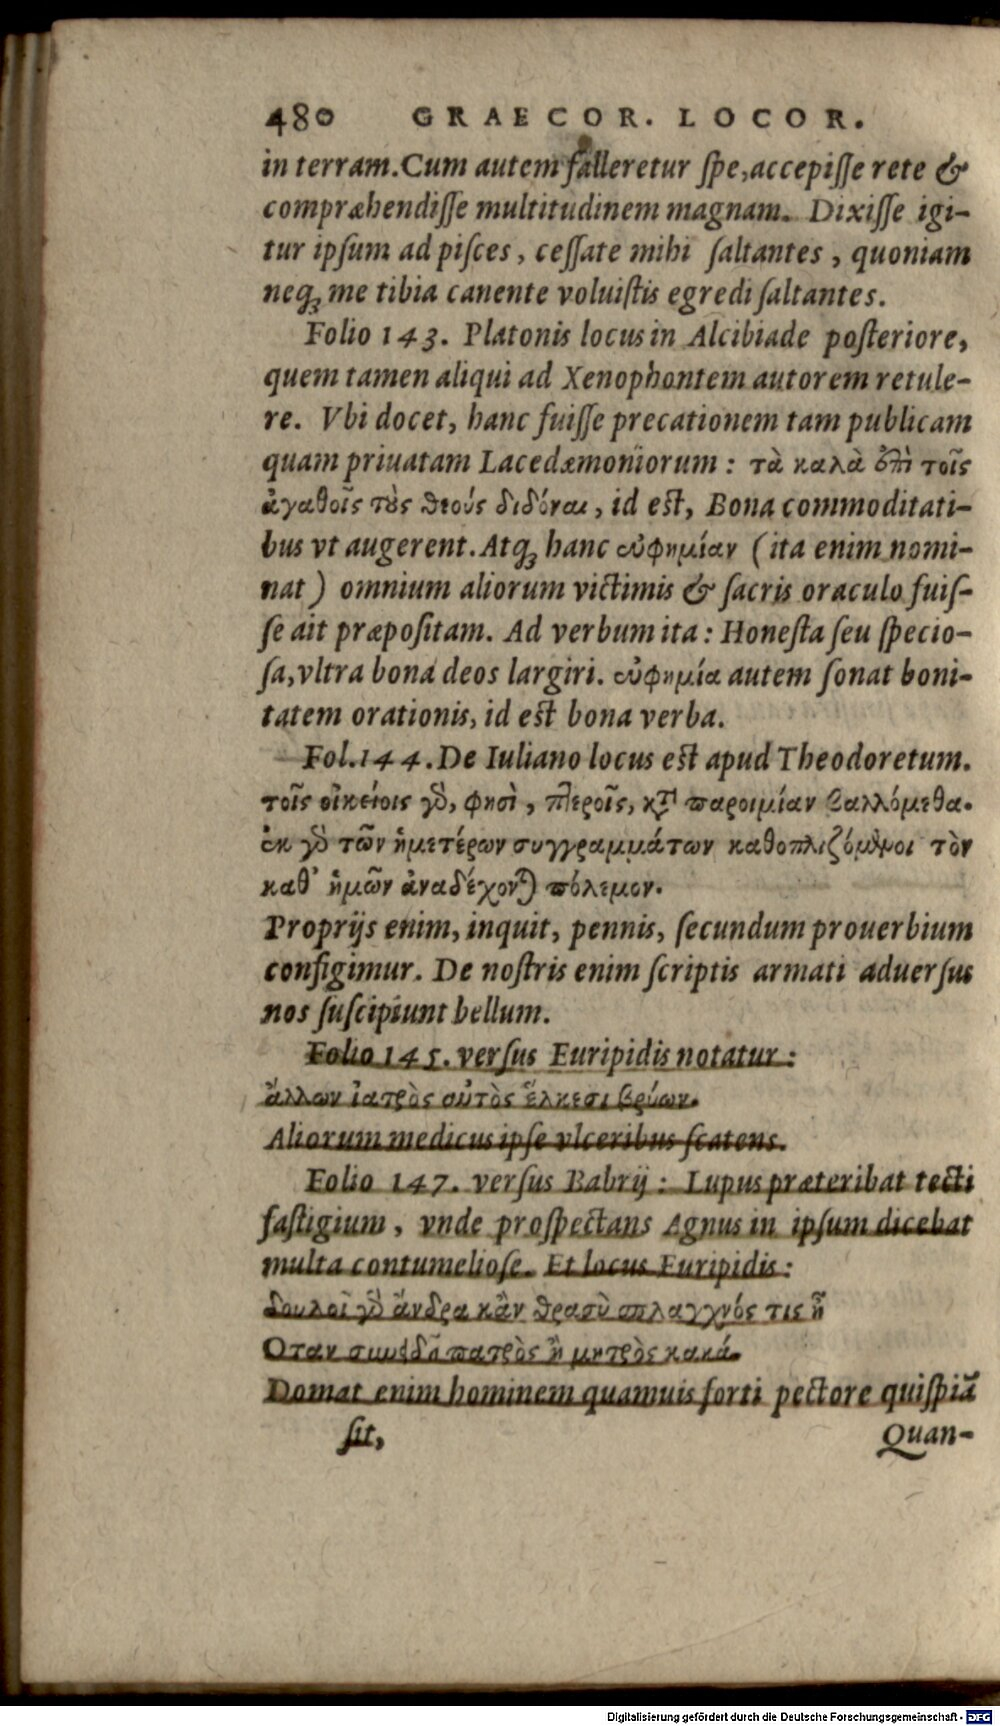 480 GRAECOR. LOCOR.
in terram. Cum autem falleretur ſpe, accepiſſe rete &
compræhendiſſe multitudinem magnam. Dixiſſe igi-
tur ipſum ad piſces, ceſſate mihi ſaltantes, quoniam
neqꝫ me tibia canente voluiſtis egredi ſaltantes.
Folio 143. Platonis locus in Alcibiade poſteriore,
quem tamen aliqui ad Xenophontem autorem retule-
re. Vbi docet, hanc fuiſſe precationem tam publicam
quam priuatam Lacedæmoniorum: τὰ καλὰ ἐπὶ τοῖς
ἀγαθοῖς τοὺς θεούς διδόναι, id eſt, Bona commoditati-
bus vt augerent. Atqꝫ hanc εὐφημίαν (ita enim nomi-
nat) omnium aliorum victimis & ſacris oraculo fuiſ-
ſe ait præpoſitam. Ad verbum ita: Honeſta ſeu ſpecio-
ſa, vltra bona deos largiri. εὐφημία autem ſonat boni-
tatem orationis, id eſt bona verba.
Fol. 144. De Iuliano locus eſt apud Theodoretum.
τοῖς οἰκείοις γὸ, φησὶ, πτεροῖς, κτ̀ παροιμίαν βαλλόμεθα.
ἐκ γὸ τῶν ἡμετέρων συγγραμμάτων καθοπλιζόμενοι τὸν
καθ᾽ ἡμῶν ἀναδέχονται πόλεμον.
Proprijs enim, inquit, pennis, ſecundum prouerbium
configimur. De noſtris enim ſcriptis armati aduerſus
nos ſuſcipiunt bellum.
Folio 145. verſus Euripidis notatur:
ἄλλων ἰατρὸς αὐτὸς ἕλκεσι βρύων.
Aliorum medicus ipſe vlceribus ſcatens.
Folio 147. verſus Babrij: Lupus præteribat tecti
faſtigium, vnde proſpectans Agnus in ipſum dicebat
multa contumelioſe. Et locus Euripidis:
δουλοῖ γὸ ἄνδρα κἂν θρασὺ σπλαγχνός τις ᾖ
Οταν συνειδῇ πατρὸς ἢ μητρὸς κακά.
Domat enim hominem quamuis forti pectore quiſpiã
ſit, Quan-
Digitalisierung gefördert durch die Deutsche Forschungsgemeinschaft - DFG